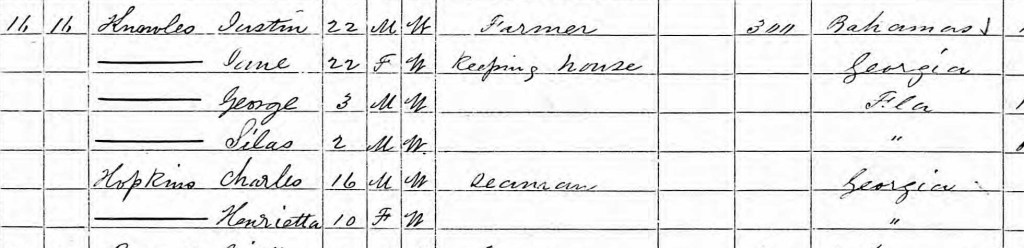 16 16 Knowles Justin 22 M W Farmer 300 Bahamas
—— Jane 22 F W Keeping house Georgia
—— George 3 M W Fla
—— Silas 2 M W "
Hopkins Charles 16 M W Seaman Georgia
—— Henrietta 10 F W "